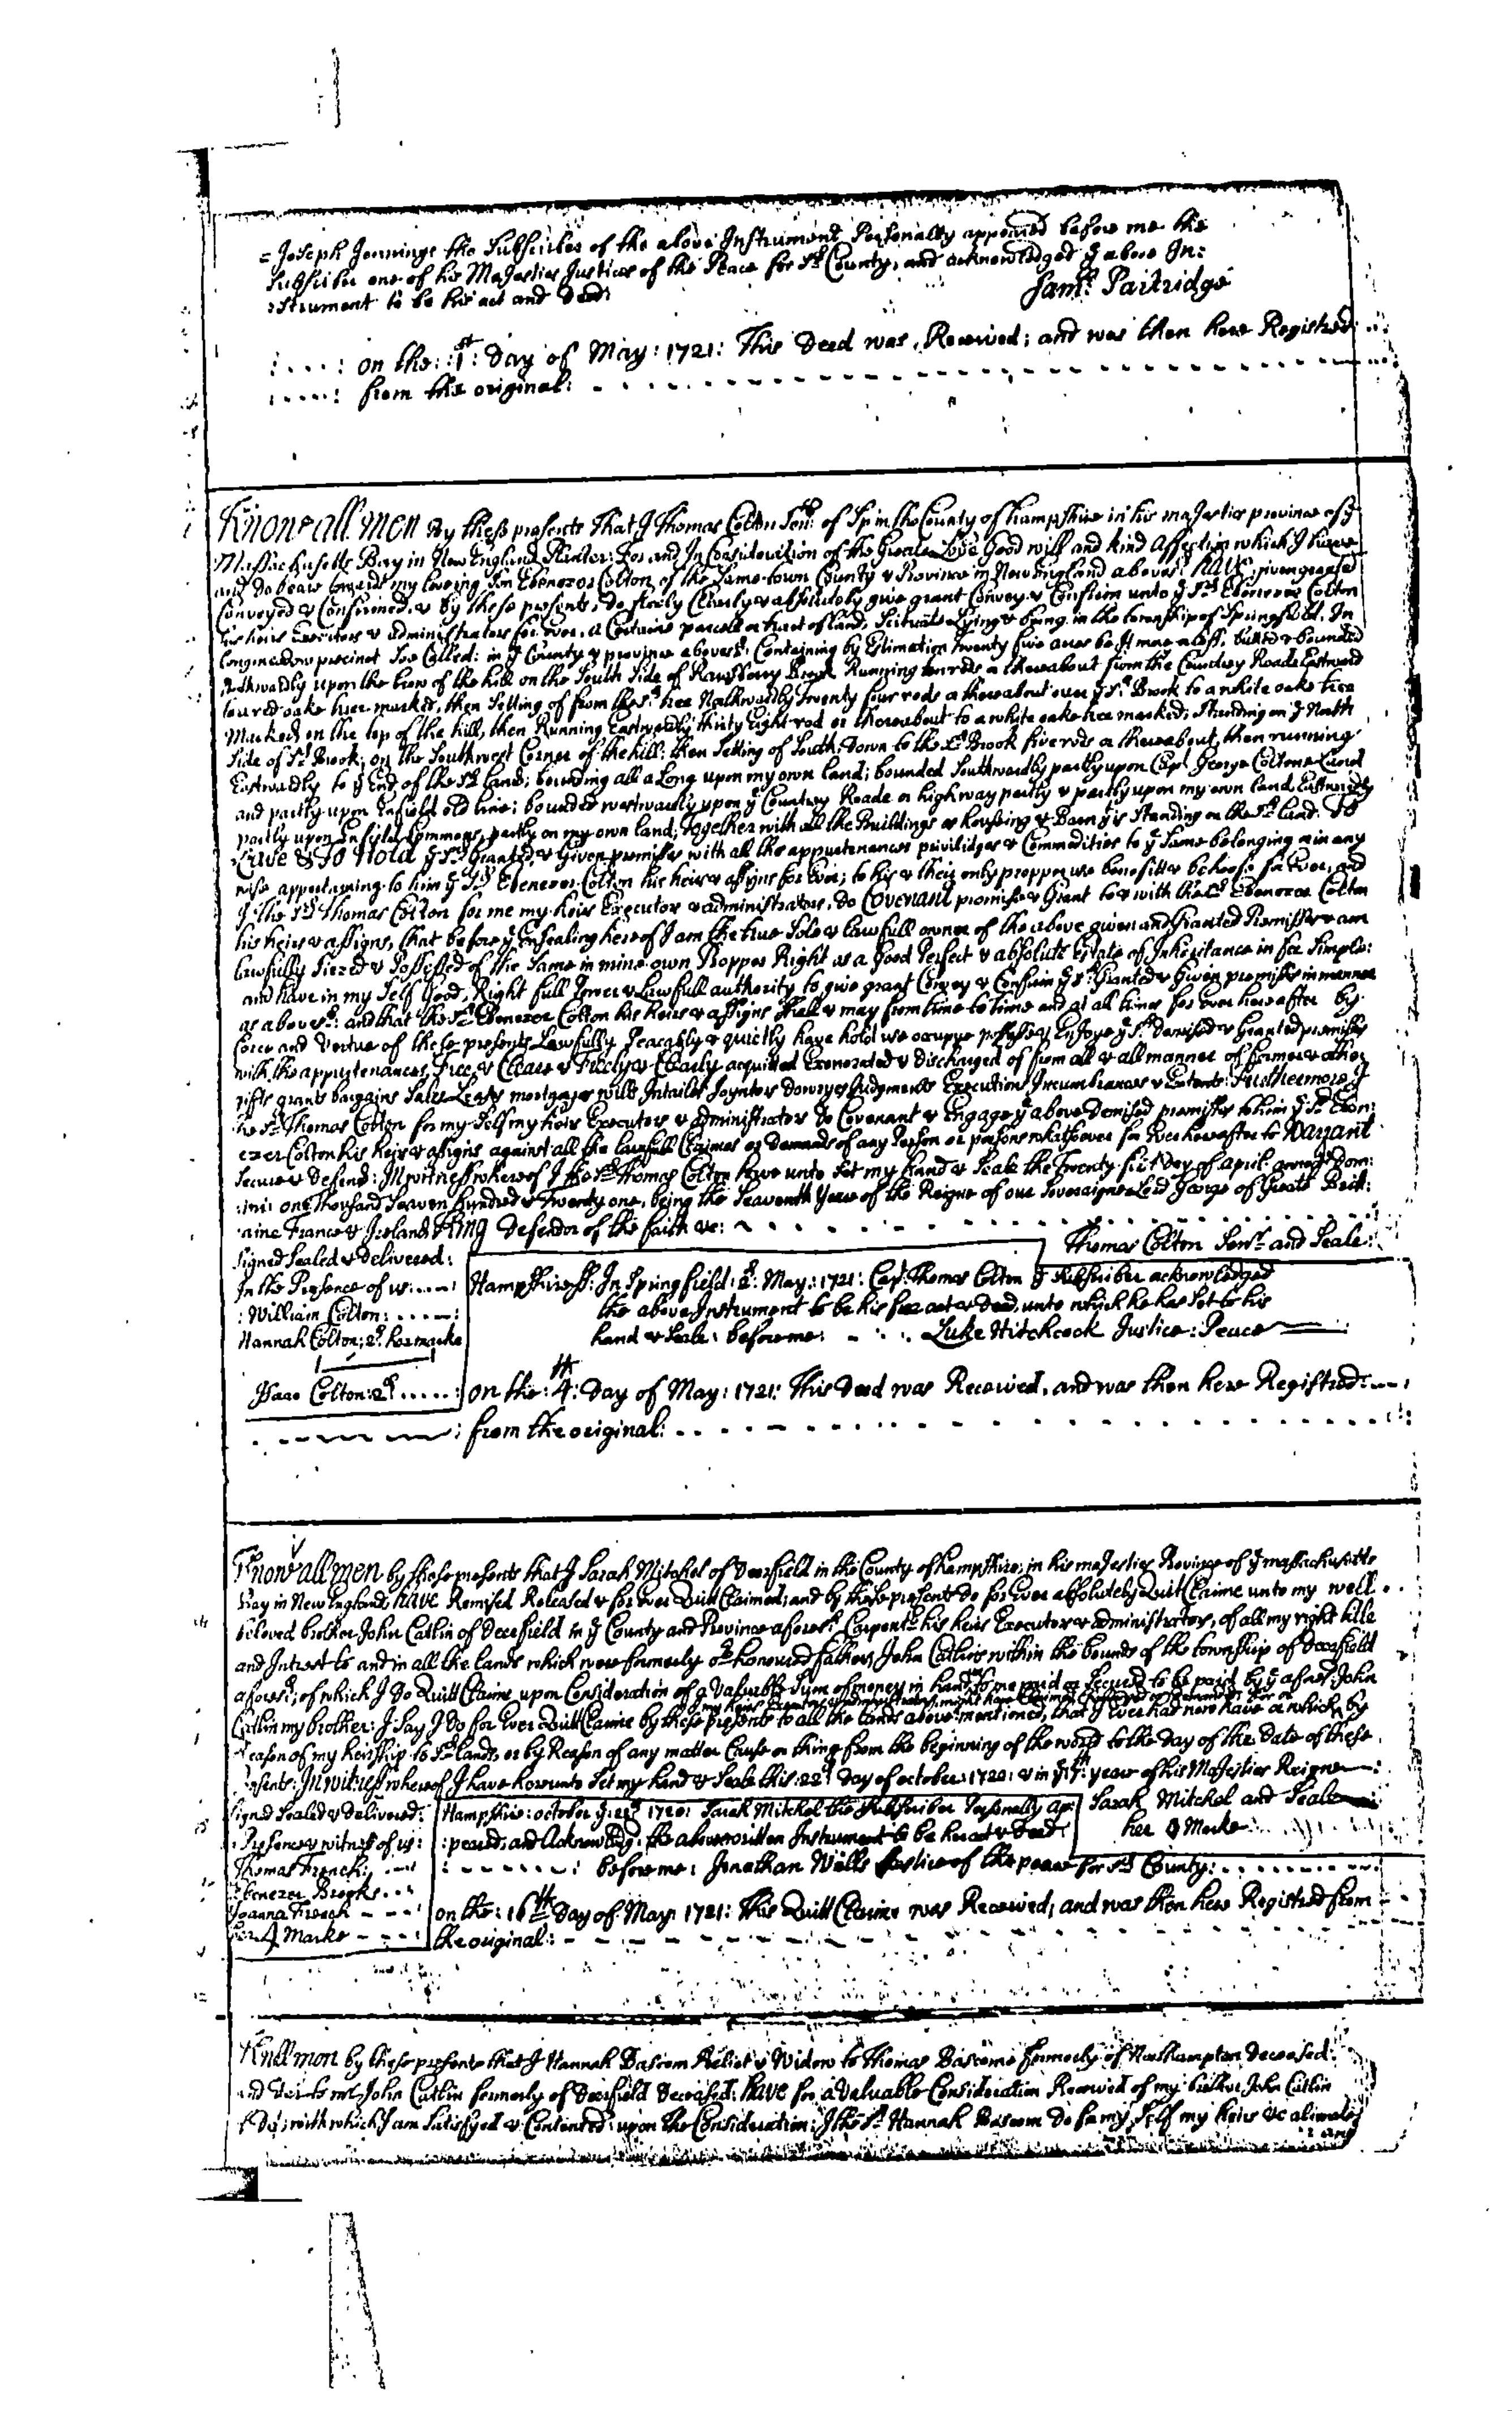 = Joseph Jennings the Subscriber of the above Instrument Personally appeared before me the
Subscriber one of his Majesties Justices of the Peace for sd County, and acknowledged ye above In:
:strument to be his act and deed:
Saml Partridge
:....: on the: 1st: day of May: 1721: This deed was, Received; and was then here Registred:
....: from the original:
Know all men By these presents That I Thomas Colton Senr of Sp in the County of Hampshire in his majesties province of ye
Massachusetts Bay in New England Planter: For and In Consideration of the Greate Love Good will and kind Affection which I have
and do beare towards my loveing Son Ebenezer Colton of the Same town County & Province in New England aboves: have given granted
Conveyed & Confirmed, & By these presents, do freely Clearly & absolutely give grant Convey & Confirm unto ye sd Ebenezer Colton
his heirs Executors & administrators for ever, a Certaine parcell or tract of land, Scituate Lying & being, in the township of Springfield, In
Longmeadow precinct Soe Called: in ye County & province abovesd: Containing by Estimation Twenty five acres be It more or less: butted & bounded
Northwardly upon the brow of the hill on the South Side of Brook Running rods or thereabout from the Countrey Roade Eastward
to a red oake tree marked, then Setting of from the sd tree Northwardly Twenty four rods or thereabout over ye sd Brook to a white oake tree
Marked on the top of the hill, then Running Eastwardly thirty Eight rod or thereabout to a white oake tree marked; Standing on ye North
Side of sd Brook; on the Southwest Corner of the hill: then Setting of South, down to the sd Brook five rods or thereabout, then running
Eastwardly to ye End of the sd land; bounding all a Long upon my own land; bounded Southwardly partly upon Capt George Coltons Land
and partly upon Enfield old line; bounded westwardly upon ye Countrey Roade or highway partly & partly upon my own land, Eastwardly
partly upon Enfield Commons, partly on my own land; Together with all the Buildings as housing & Barn yt is Standing on the sd land. To
Have & To Hold ye sd Granted & Given premisses with all the appurtenances priviledges & Commodities to ye Same belonging or in any
wise appertaining to him ye sd Ebenezer Colton his heirs & assigns for Ever; to his & their only propper use benefitt & behoofe for Ever, and
I the sd Thomas Colton for me my heirs Executors & administrators, do Covenant promise & Grant to & with the sd Ebenezer Colton
his heirs & assigns, that before ye Ensealing hereof I am the true Sole & lawfull owner of the above given and Granted Premisses & am
lawfully Siezed & Possessed of the Same in mine own Propper Right as a Good Perfect & absolute Estate of Inheritance in fee Simple:
and have in my Self Good, Right full Power & Lawfull authority to give grant Convey & Confirm ye sd Granted & Given premisses in manner
as abovesd: and that the sd Ebenezer Colton his heirs & assigns Shall & may from time to time and at all times for ever hereafter by
force and Vertue of these presents Lawfully Peaceably & quietly have hold use occupye possess & Enjoye ye sd demised & Granted premisses
with the appurtenances, Free & Cleare & Freely & Clearly acquitted Exonerated & discharged of from all & all manner of former & other
gifts grants bargains Sales Leases mortgages wills Intailes Joyntes dowryes Judgments Executions Incumbrances & Extents: Furthermore I
the sd Thomas Colton for my Self my heirs Executors & administrators do Covenant & Engage ye above demised premisses to him ye sd Eben:
ezer Colton his heirs & assigns against all the lawfull Claimes or demands of any Person or persons whatsoever for Ever hereafter to Warrant
Secure & defend: In witness whereof I the sd Thomas Colton have unto Set my hand & Seale the Twenty first day of april: annoqe Dom:
:ini: one Thousand Seaven hundred & Twenty one, being the Seaventh yeare of the Reigne of our Soveraigne Lord George of Greate Britt:
:aine France & Ireland King defendor of the faith &c:
Thomas Colton Senr and Seale:
Signed Sealed & delivered:
In the Presence of us:
: William Colton:
Hannah Colton: 2d her marke
Isaac Colton: 2d
Hampshire ss: In Springfield: 2d: May: 1721: Capt Thomas Colton ye Subscriber acknowledged
the above Instrument to be his free act & deed, unto which he has Set to his
hand & Seale: before me: Luke Hitchcock Justice: Peace
on the: 4th: day of May: 1721: This deed was Received, and was then here Registred:
: from the original:
Know all men by these presents that I Sarah Mitchel of Deerfield in the County of hampshire, in his majesties Province of ye massachusetts
Bay in New England, have Remised Released & for ever Quitt Claimed; and by these presents do for Ever absolutely Quit Claime unto my well
beloved brother John Catlin of Deerfield in ye County and Province aforesd Carpentr his heirs Executors & administrators, of all my right title
and Intrest to and in all the lands which were formerly or honoured father, John Catlins within the bounds of the township of Deerfield
aforesd; of which I do Quitt Claime, upon Consideration of a Valuable Sum of money in hand, to me paid or Secured to be paid by ye aforesd John
my heirs Executors & administrators, might have Claimed Challenged or demanded for or
Catlin my brother: I Say I do for Ever Quitt Claime by these presents to all the lands above mentioned, that I Ever had now have or which by
Reason of my heirship to sd lands, or by Reason of any matter Cause or thing from the beginning of the world to the day of the date of these
Presents: In witness whereof I have hereunto Set my hand & Seale this: 22d day of october: 1720: & in ye 7th: yeare of his Majesties Reigne
Signed Sealed & delivered:
Presence & witness of us:
Thomas French:
Ebenezer Brooks
Joanna French
her Marke
Hampshire: october ye 1720: Sarah Mitchel the Subscriber Personally ap:
:peared; and Acknowledg: the above written Instrument to be her act & deed
: before me: Jonathan Wells Justice of the peace for sd County:
Sarah Mitchel and Seale
her Marke
on the: 16th day of May: 1721: This Quitt Claime was Received; and was then here Registred from
the original:
Kn all men by these presents that I Hannah Bascom Relict & Widow to Thomas Bascome formerly of Northampton deceased:
and John Catlin formerly of Deerfield deceased: have for a Valuable Consideration Received of my brother John Catlin
with which I am Satisfyed & Contented: upon the Consideration: I the sd Hannah Bascom do for my Self my heirs &c
: any